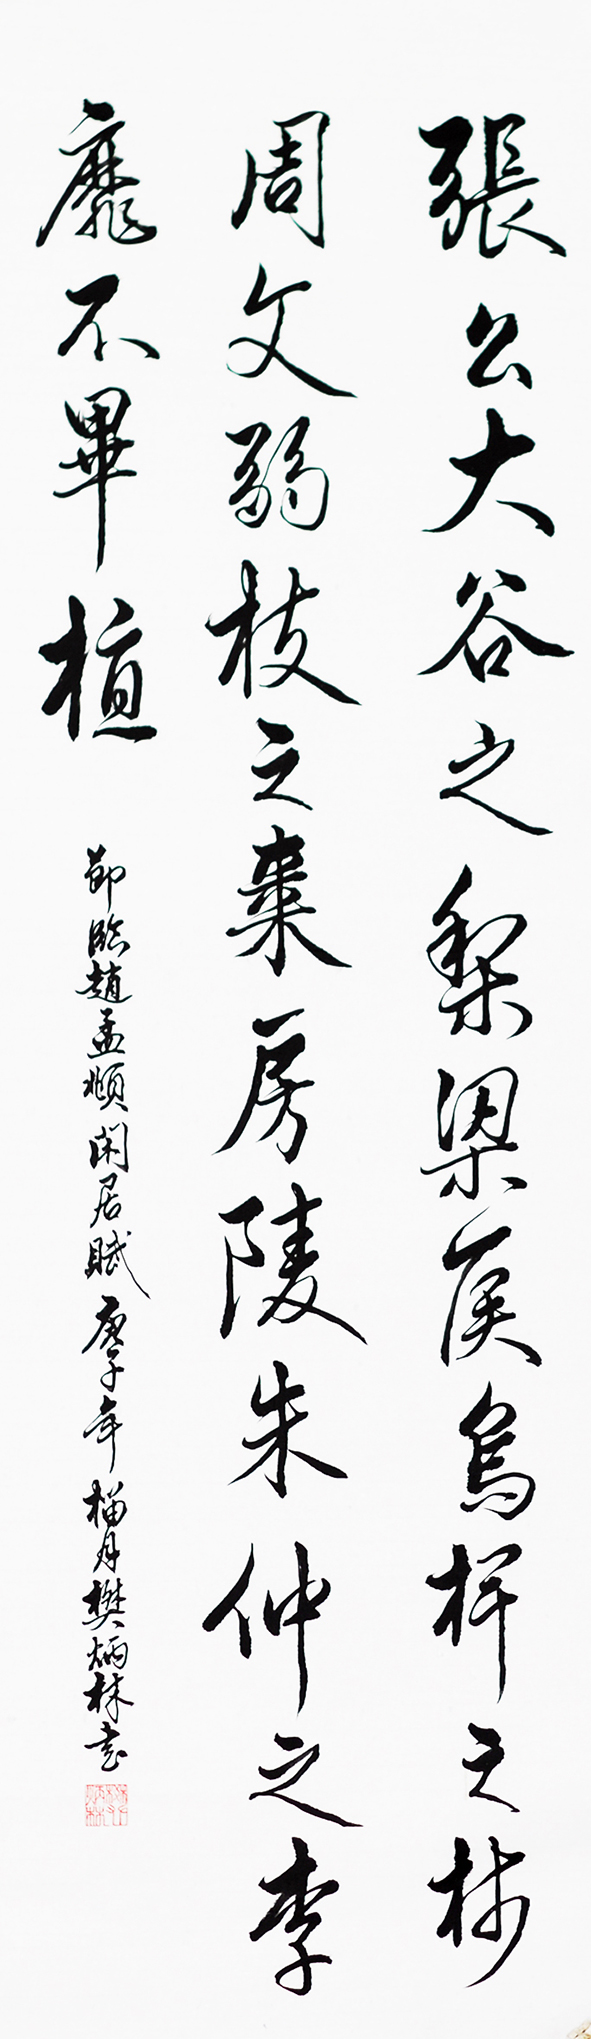 張公大谷之梨梁侯烏椑之柹
周文弱枝之棗房陵朱仲之李
靡不畢植
節臨趙孟頫閑居賦 庚子年 榴月樊炳林書